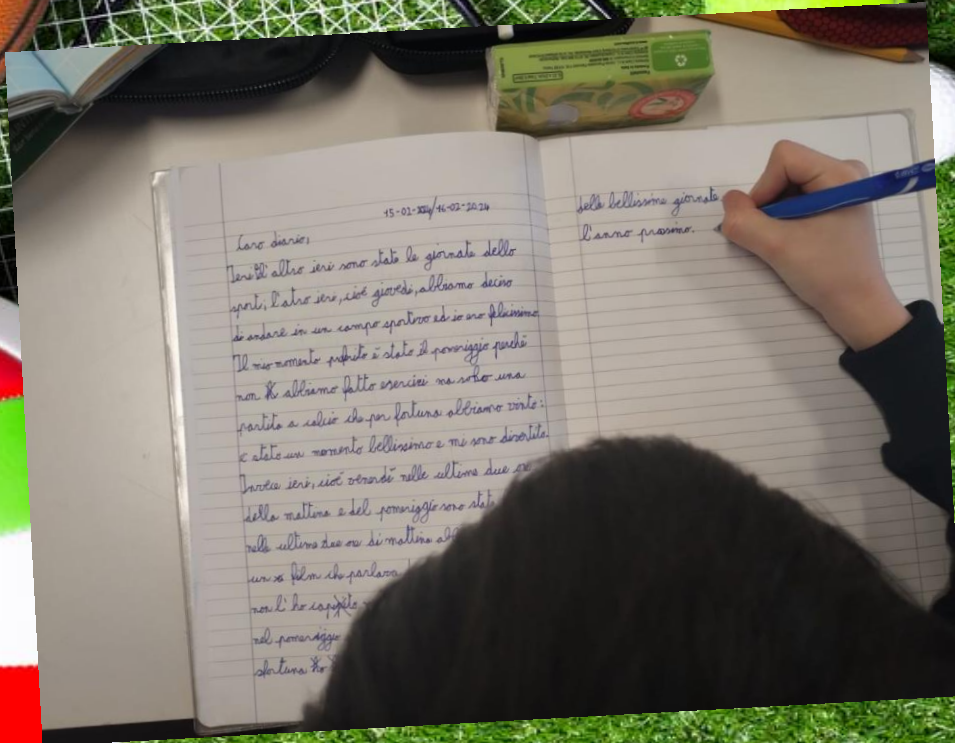 15-02-2024/16-02-2024
Caro diario,
Ieri e l'altro ieri sono state le giornate dello
sport, l'atro ieri, cioè giovedì, abbiamo deciso
di andare in un campo sportivo ed io ero felicissimo.
Il mio momento preferito è stato il pomeriggio perché
non abbiamo fatto esercizi ma solo una
partita a calcio che per fortuna abbiamo vinto:
è stato un momento bellissimo e mi sono divertito.
Invece ieri, cioè venerdì nelle ultime due
della mattina e del pomeriggio sono
nelle ultime due ore di mattina
un film che parlava
non l'ho capito
nel pomeriggio
sfortuna ho
delle bellissime giornate
l'anno prossimo.